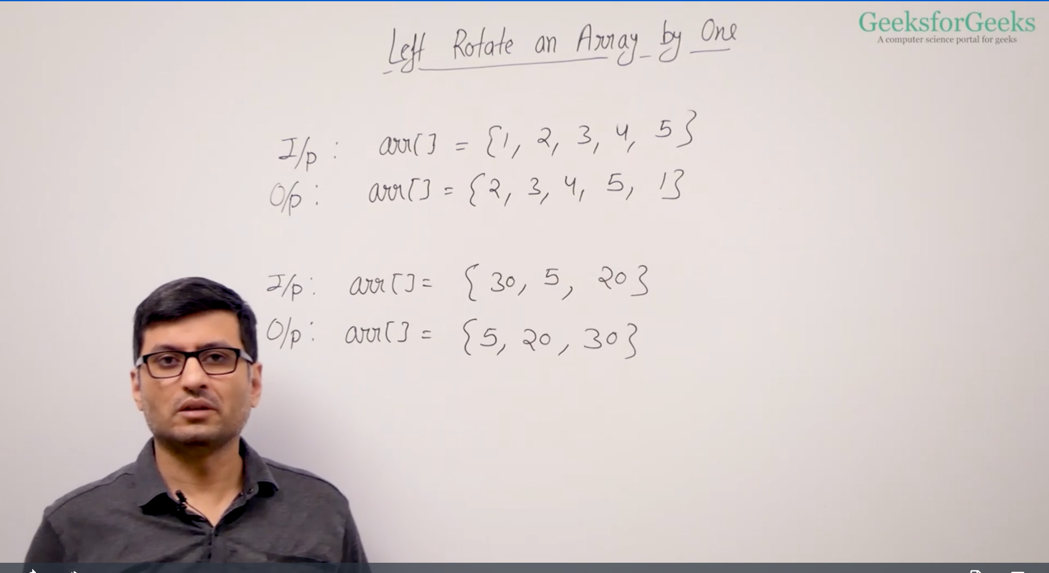 GeeksforGeeks
A computer science portal for geeks
Left Rotate an Array by One
I/p : arr[] = {1, 2, 3, 4, 5}
O/p : arr[] = {2, 3, 4, 5, 1}
I/p : arr[] = {30, 5, 20}
O/p : arr[] = {5, 20, 30}